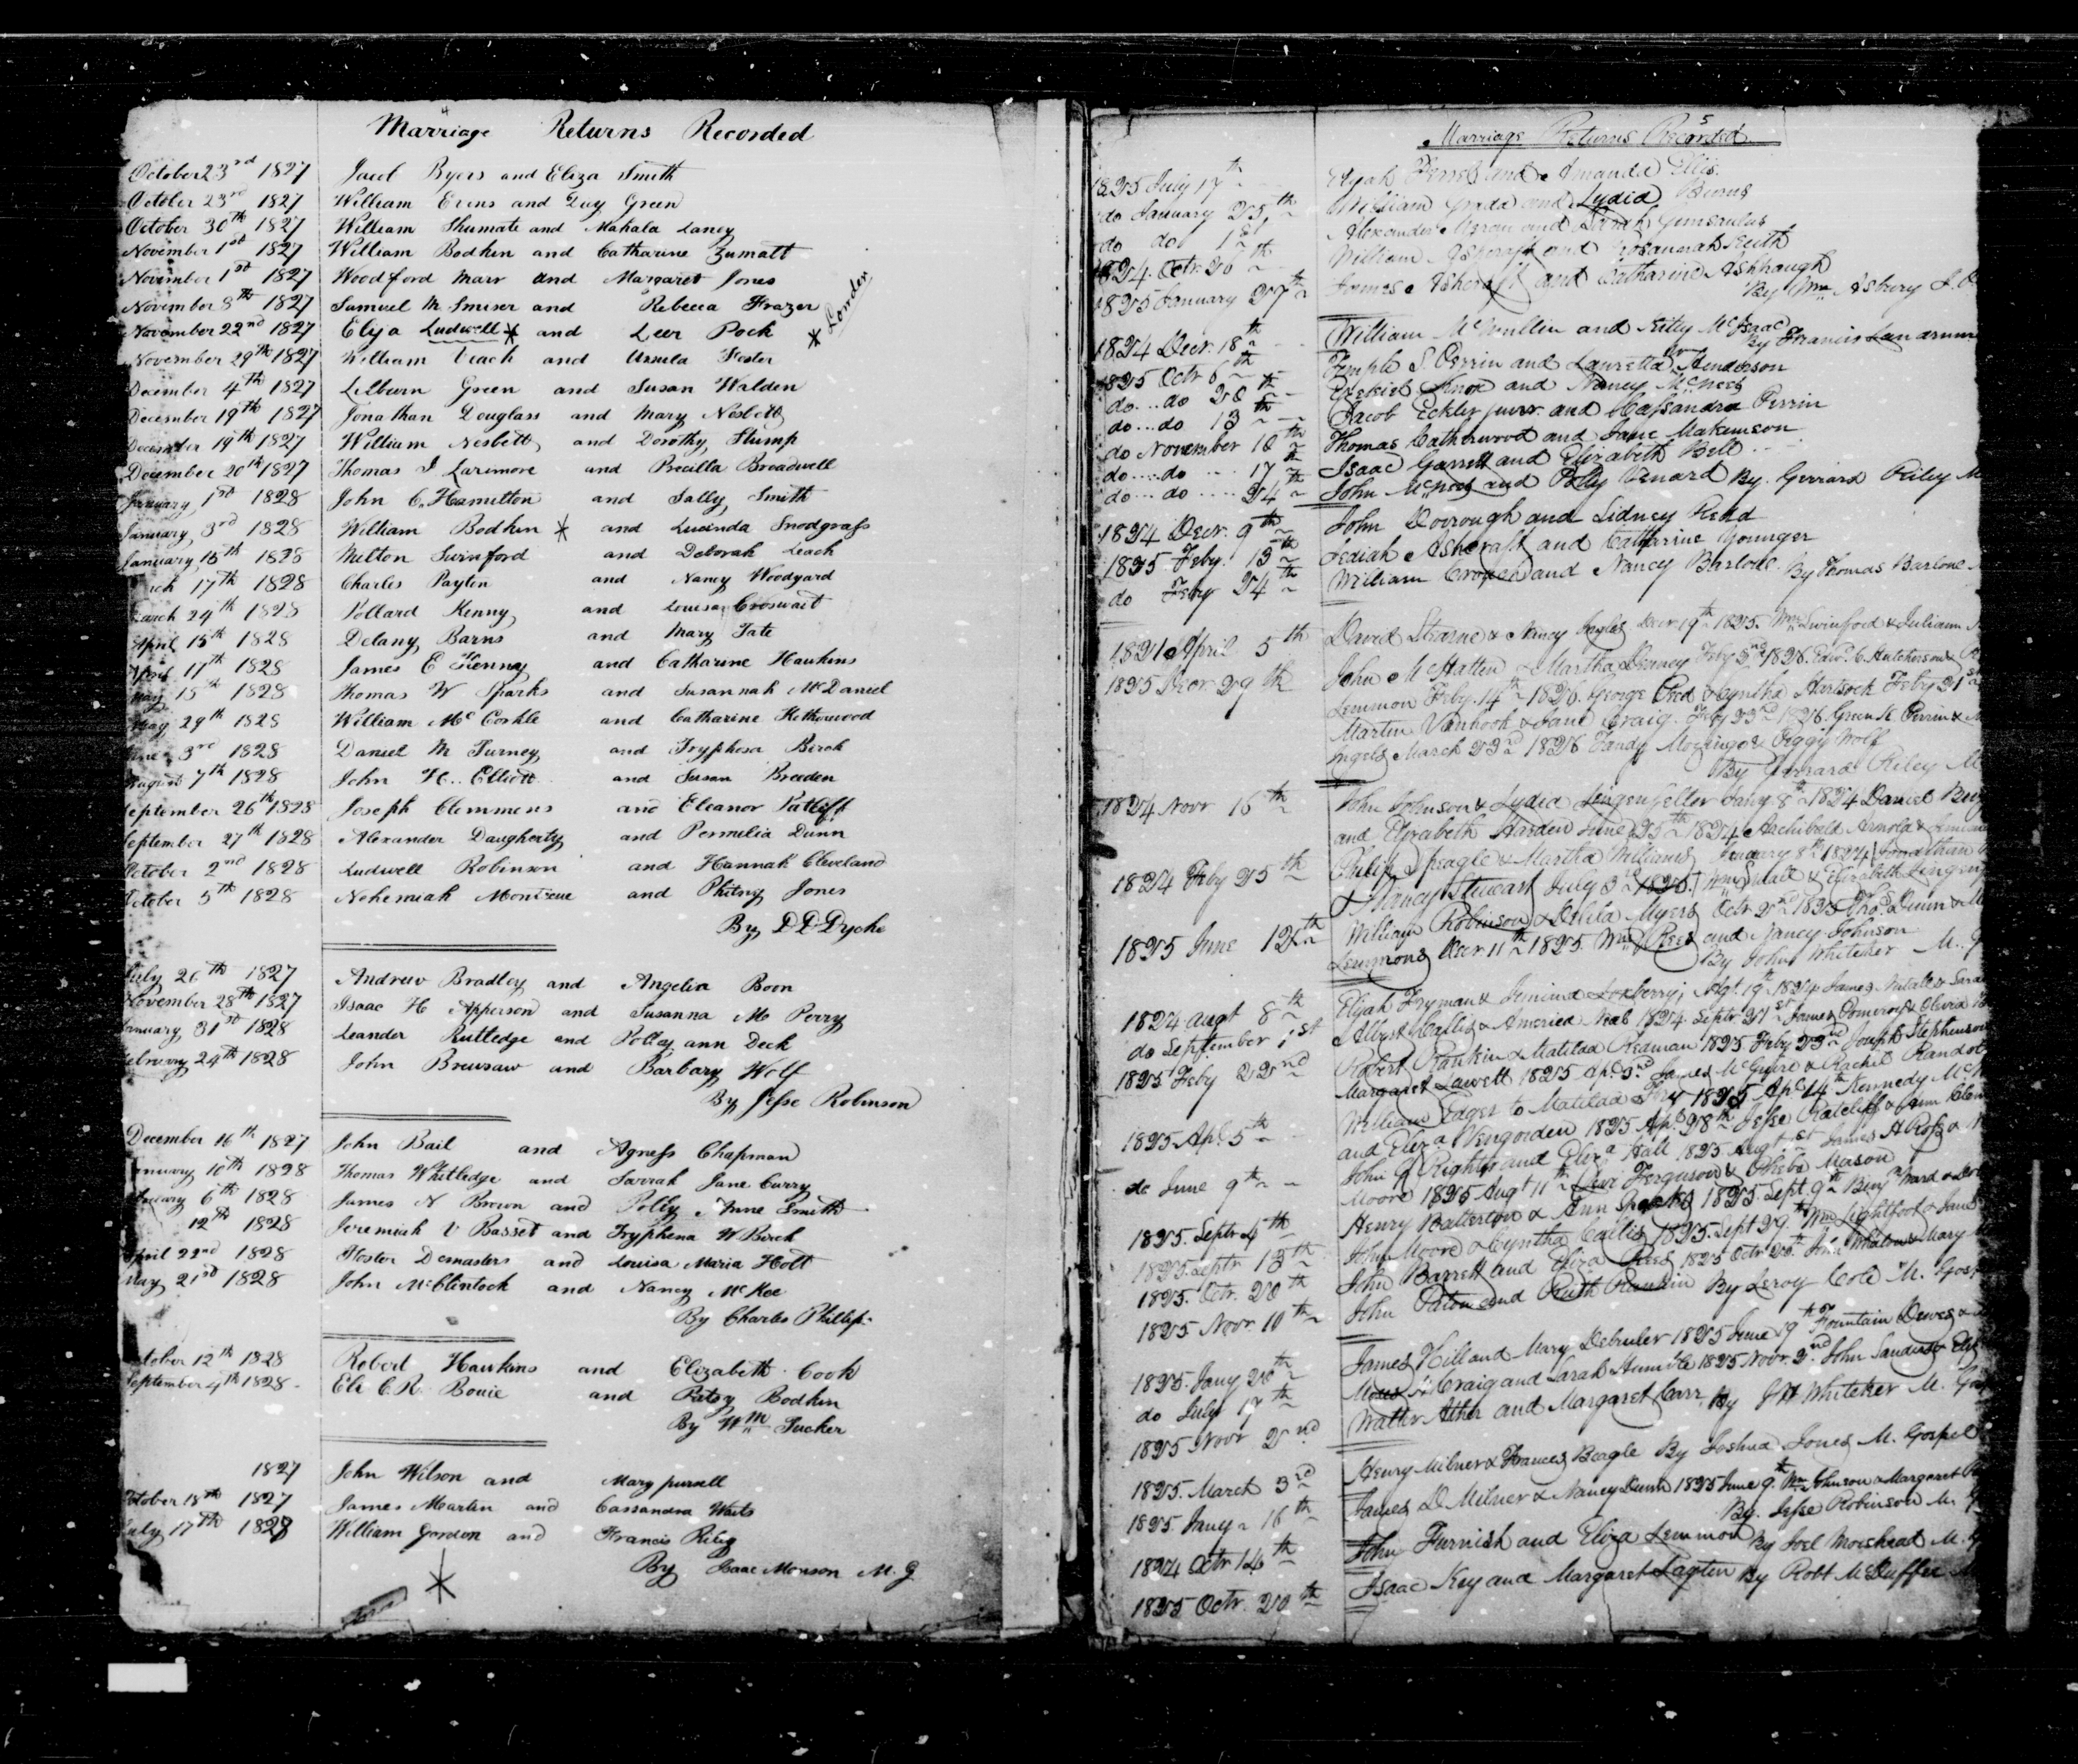 4
Marriage Returns Recorded
October 23rd 1827 Jacob Byers and Eliza Smith
October 23rd 1827 William Evens and Lucy Green
October 30th 1827 William Shumate and Mahala Laney
November 1st 1827 William Bodkin and Catharine Zumalt
November 1st 1827 Woodford Marr and Margaret Jones
November 8th 1827 Samuel M. Smiser and Rebecca Frazer
November 22nd 1827 Elija Ludwell * and Leer Pock * Lander
November 29th 1827 William Veach and Ursula Foster
December 4th 1827 Lilburn Green and Susan Walden
December 19th 1827 Jonathan Douglass and Mary Nesbett
December 19th 1827 William Nesbett and Dorothy Stump
December 20th 1827 Thomas J Larimore and Precilla Broadwell
January 1st 1828 John C. Hamilton and Sally Smith
January 3rd 1828 William Bodkin * and Lucinda Snodgrass
January 15th 1828 Milton Swinford and Deborah Leach
17th 1828 Charles Payton and Nancy Woodyard
March 24th 1828 Pollard Kenny and Louisa Croswait
April 15th 1828 Delany Barns and Mary Tate
April 17th 1828 James E Kenney and Catharine Haukins
May 15th 1828 Thomas W Sparks and Susannah McDaniel
May 29th 1828 William McCorkle and Catharine Ketherwood
June 3rd 1828 Daniel M Turney and Tryphosa Birch
August 7th 1828 John H. Elliott and Susan Breeden
September 26th 1828 Joseph Clemmens and Eleanor Ratliff
September 27th 1828 Alexander Daugherty and Permelia Dunn
October 2nd 1828 Ludwell Robinson and Hannah Cleveland
October 5th 1828 Nehemiah Monteeue and Phitny Jones
By D D Dyche
July 26th 1827 Andrew Bradley and Angelia Boon
November 28th 1827 Isaac H Apperson and Susanna Mc Perry
January 31st 1828 Leander Rutledge and Polley ann Deck
February 24th 1828 John Brewsaw and Barbary Wolf
By Jesse Robinson
December 16th 1827 John Bail and Agness Chapman
January 10th 1828 Thomas Whitledge and Sarrah Jane Curry
February 6th 1828 James N Brown and Polly Anne Smith
12th 1828 Jeremiah V Basset and Tryphena W Birch
April 22nd 1828 Foster Demasters and Louisa Maria Holt
May 21st 1828 John McClintock and Nancy McKee
By Charles Phillips
October 12th 1828 Robert Haukins and Elizabeth Cook
September 4th 1828 Eli C.R. Bouie and Patsy Bodkin
By Wm Tucker
1827 John Wilson and Mary pursell
October 18th 1827 James Martin and Cassandra Waits
July 17th 1828 William Gordon and Francis Riley
By Isaac Monson M. G
*
5
Marriage Returns Recorded
1825 July 17th Elijah and Amanda Ellis
do January 25th William Grada and Lydia Burns
do do 1st Alexander and Sarah Gunsaulus
1824. Octr. 26th William Ashcraft and Rosannah Keith
1825 January 27th James Ashcraft and Catharine Ashbaugh
By Wm Asbury
1824 Decr. 18th William McMullin and Kitty McIsaac
By Francis Landrum
1825 Octr 6th Temple S. Perrin and Lauretta Henderson
do .. do 20th Ezekiel and Nancy McNees
do .. do 13th Jacob Eckler junr. and Cassandra Perrin
do November 10th Thomas Catherwood and Jane Makemson
do .... do ... 17th Isaac Garrett and Elizabeth Bell
do ... do .... 24 John McNees and Polly Venard By. Gerrard Riley M
1824 Decr. 9th John Dorrough and Sidney Read
1825 Feby. 13th Jediah Ashcraft and Catharine Younger
do Feby 24th William Cropen and Nancy Barlow. By Thomas Barlone
1821 April 5th David Stearne & Nancy Decr 19th 1825. Wm Swinford & Juliann
1825 Decr 29th John McHatten & Martha Feby 2nd 1826. Edwd. C. Hutcherson &
Lemmon Feby. 14th 1826. George & Cyntha Hartsock Feby 21st
Martin Vanhook & Jane Craig. Feby 23rd 1826 Green H. Perrin &
Ingels March 23rd 1826 Tandy & Peggy Wolf
By Gerrard Riley M
1824 Novr 16th John Johnson & Lydia Lingenfelter Jany. 8th 1824 Daniel
and Elizabeth Harden June 25th 1824 Archibald Arnold &
1824 Feby 25th Philip Speagle & Martha Williams January 8th 1824 Jonathan
& Nancy Stewart July 3rd 1825. & Elizabeth
1825 June 12th William Robinson & Delila Myers Octr. 1825 Thos. Dunn &
Lemmons Decr 11th 1825. Wm Rees and Nancy Johnson
By John Whiteker M. G
1824 augt 8th Elijah Fryman & Jemima Agt. 19th 1824 James & Sara
do September 1st Albert Callis & America Neal 1824 Septr 21st James Pomeroy & Olivia
1825 Feby 22nd Robert Rankin & Matilda Redman 1825 Feby 23rd Joseph Stephenson
Margaret 1825 Apl. 3rd James McGuire & Rachel
1825 Apl. 5th William Edger to Matilda Fry 1825 Apl. 14th Kennedy
and Eliza Vengorden 1825 Apl. 28th Jesse Ratcliff & Ann
do June 9th John R Righter and Eliza Hall 1825 Augt 1st James A Ross &
Moore 1825 Augt 11th Levi Ferguson & Phebe Mason
1825. Septr 4th Henry Batterton & Ann 1825 Sept. 9th Benj Ward &
1825. Septr 13th John Moore & Cyntha Callis 1825. Sept 29th Wm Lightfoot & Jane
1825. Octr. 20th John Barrett and Eliza Rees 1825 Octr 20th John & Mary
1825 Novr. 10th John Paton and Ruth Rankin By Leroy Cole M. Gosp
1825. Jany 20th James Hill and Mary Debruler 1825 June 19th Fountain Dewes &
do July 17th Moses A Craig and Sarah Humble 1825 Novr. 2nd John Sanders &
1825 Novr 2nd Walter Ather and Margaret Carr. By J W Whiteker M. Gos
1825. March 3rd Henry Milner & Frances Beagle By Joshua Jones M. Gospel
1825. Jany 16th James D Milner & Nancy Dunn 1825 June 9th Wm Johnson & Margaret
By. Jesse Robinson M. G
1824 Octr 14th John Furnish and Eliza Lemmon By Joel Morehead M. G
1825 Octr. 20th Isaac Key and Margaret Layten By Robt McDuffee M